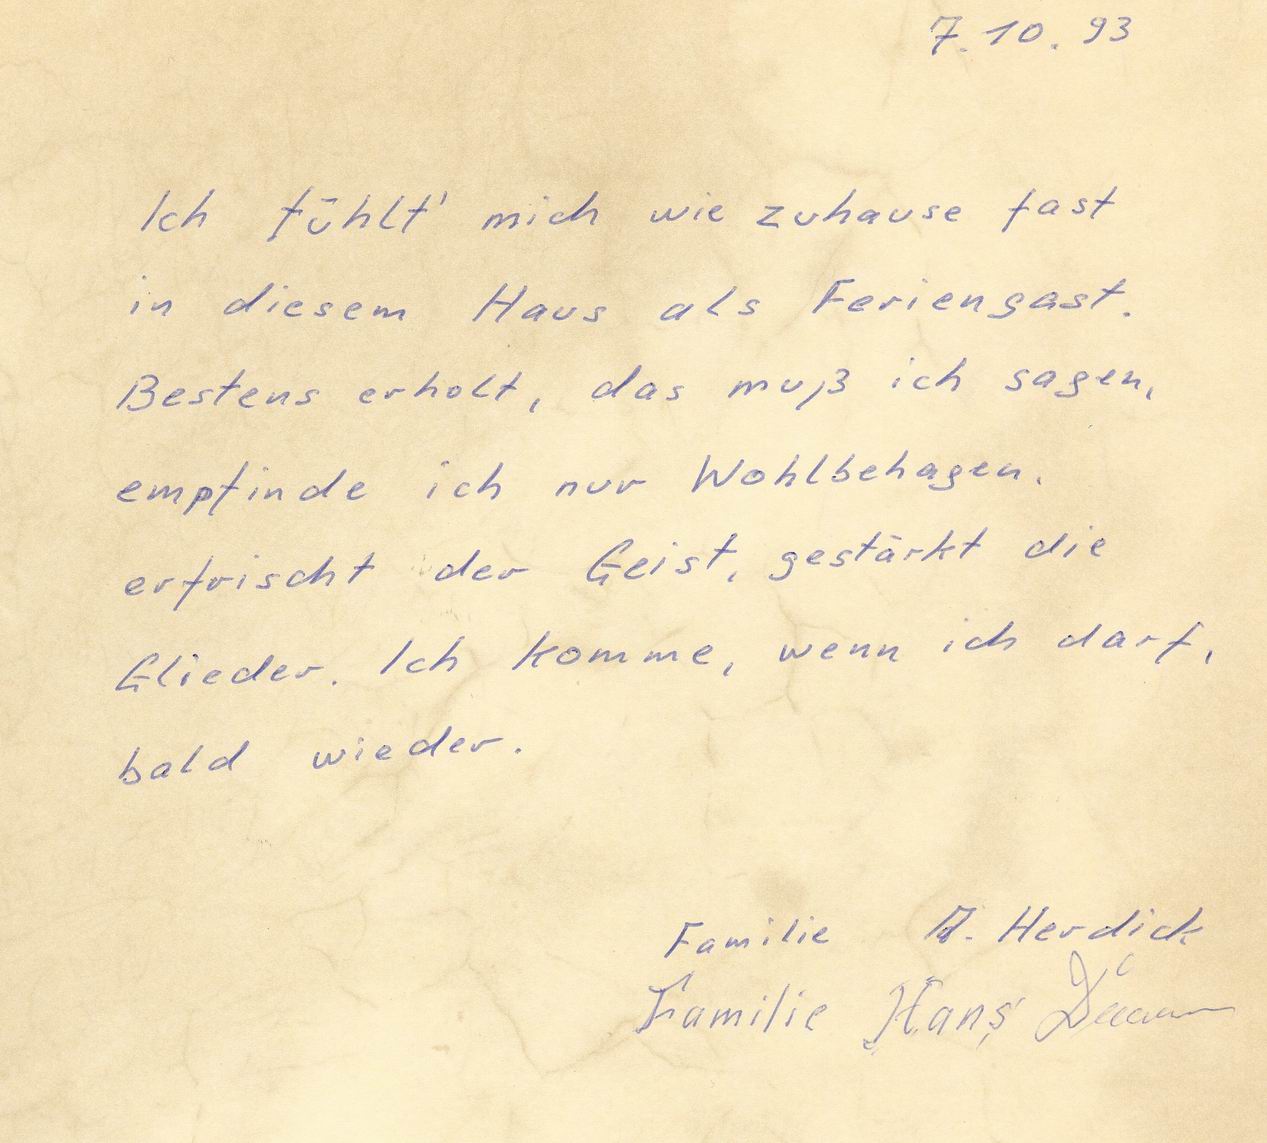 7.10.93
Ich fühlt' mich wie zuhause fast
in diesem Haus als Feriengast.
Bestens erholt, das muß ich sagen,
empfinde ich nur Wohlbehagen.
erfrischt der Geist, gestärkt die
Glieder. Ich komme, wenn ich darf,
bald wieder.
Familie A. Herdick
Familie Hans